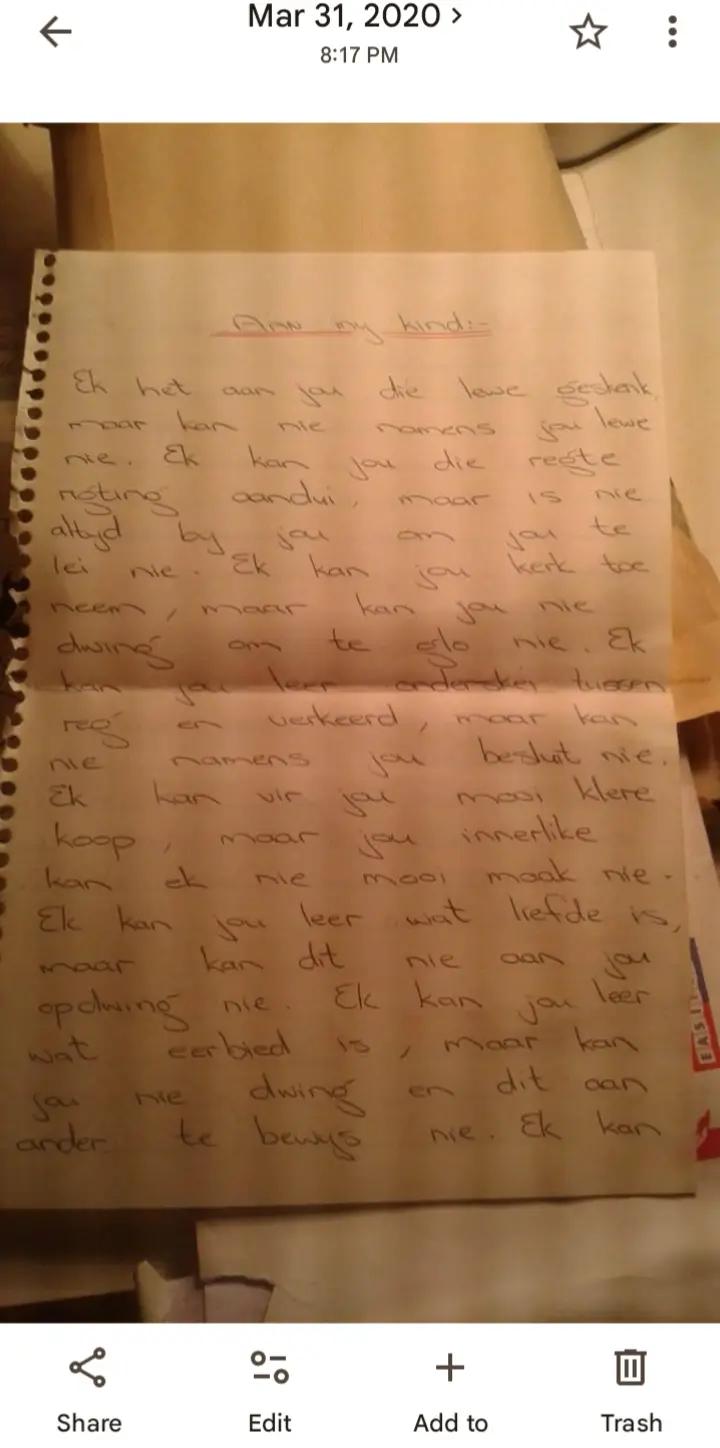 Mar 31, 2020 >
8:17 PM
AAN my kind:-
Ek het aan jou die lewe geskenk,
maar kan nie namens jou lewe
nie. Ek kan jou die regte
rigting aandui, maar is nie
altyd by jou om jou te
lei nie. Ek kan jou kerk toe
neem, maar kan jou nie
dwing om te glo nie. Ek
kan jou leer onderskei tussen
reg en verkeerd, maar kan
nie namens jou besluit nie.
Ek kan vir jou mooi klere
koop, maar jou innerlike
kan ek nie mooi maak nie.
Ek kan jou leer wat liefde is,
maar kan dit nie aan jou
opdwing nie. Ek kan jou leer
wat eerbied is, maar kan
jou nie dwing en dit aan
ander te bewys nie. Ek kan
EASI
Share Edit Add to Trash